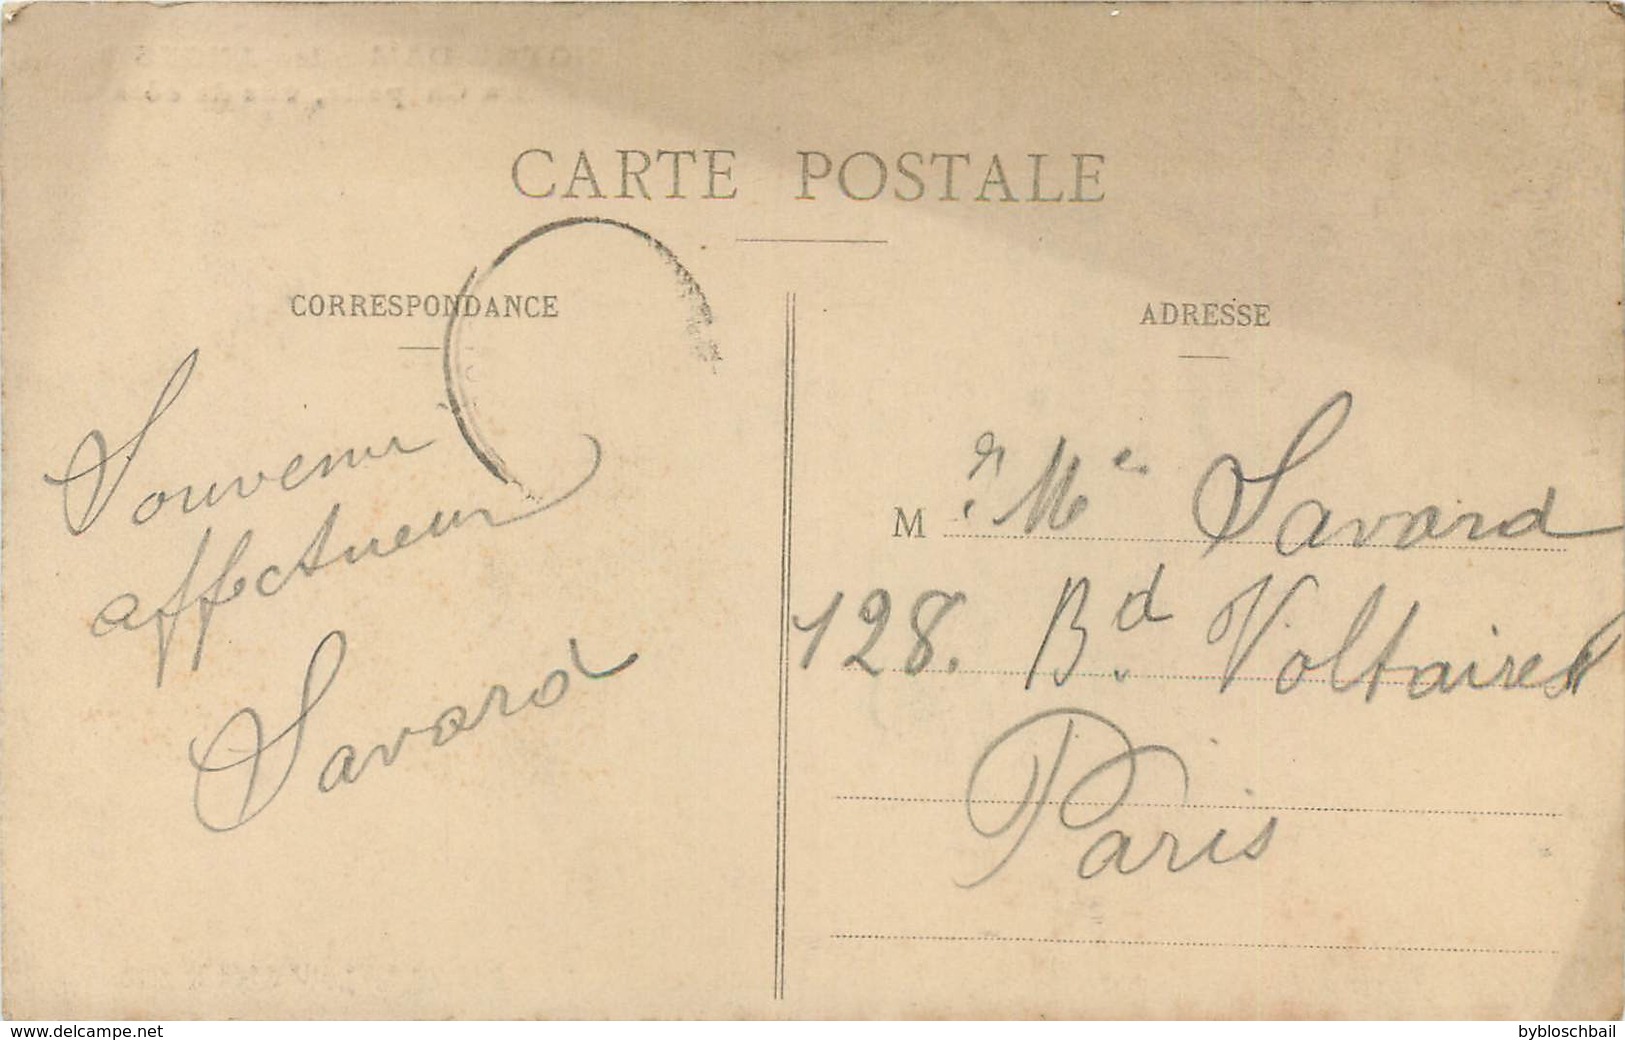 CARTE POSTALE
CORRESPONDANCE
Souvenir
affectueux
Savard
ADRESSE
M Mr Me Savard
128. Bd Voltaire
Paris
www.delcampe.net
bybloschbail